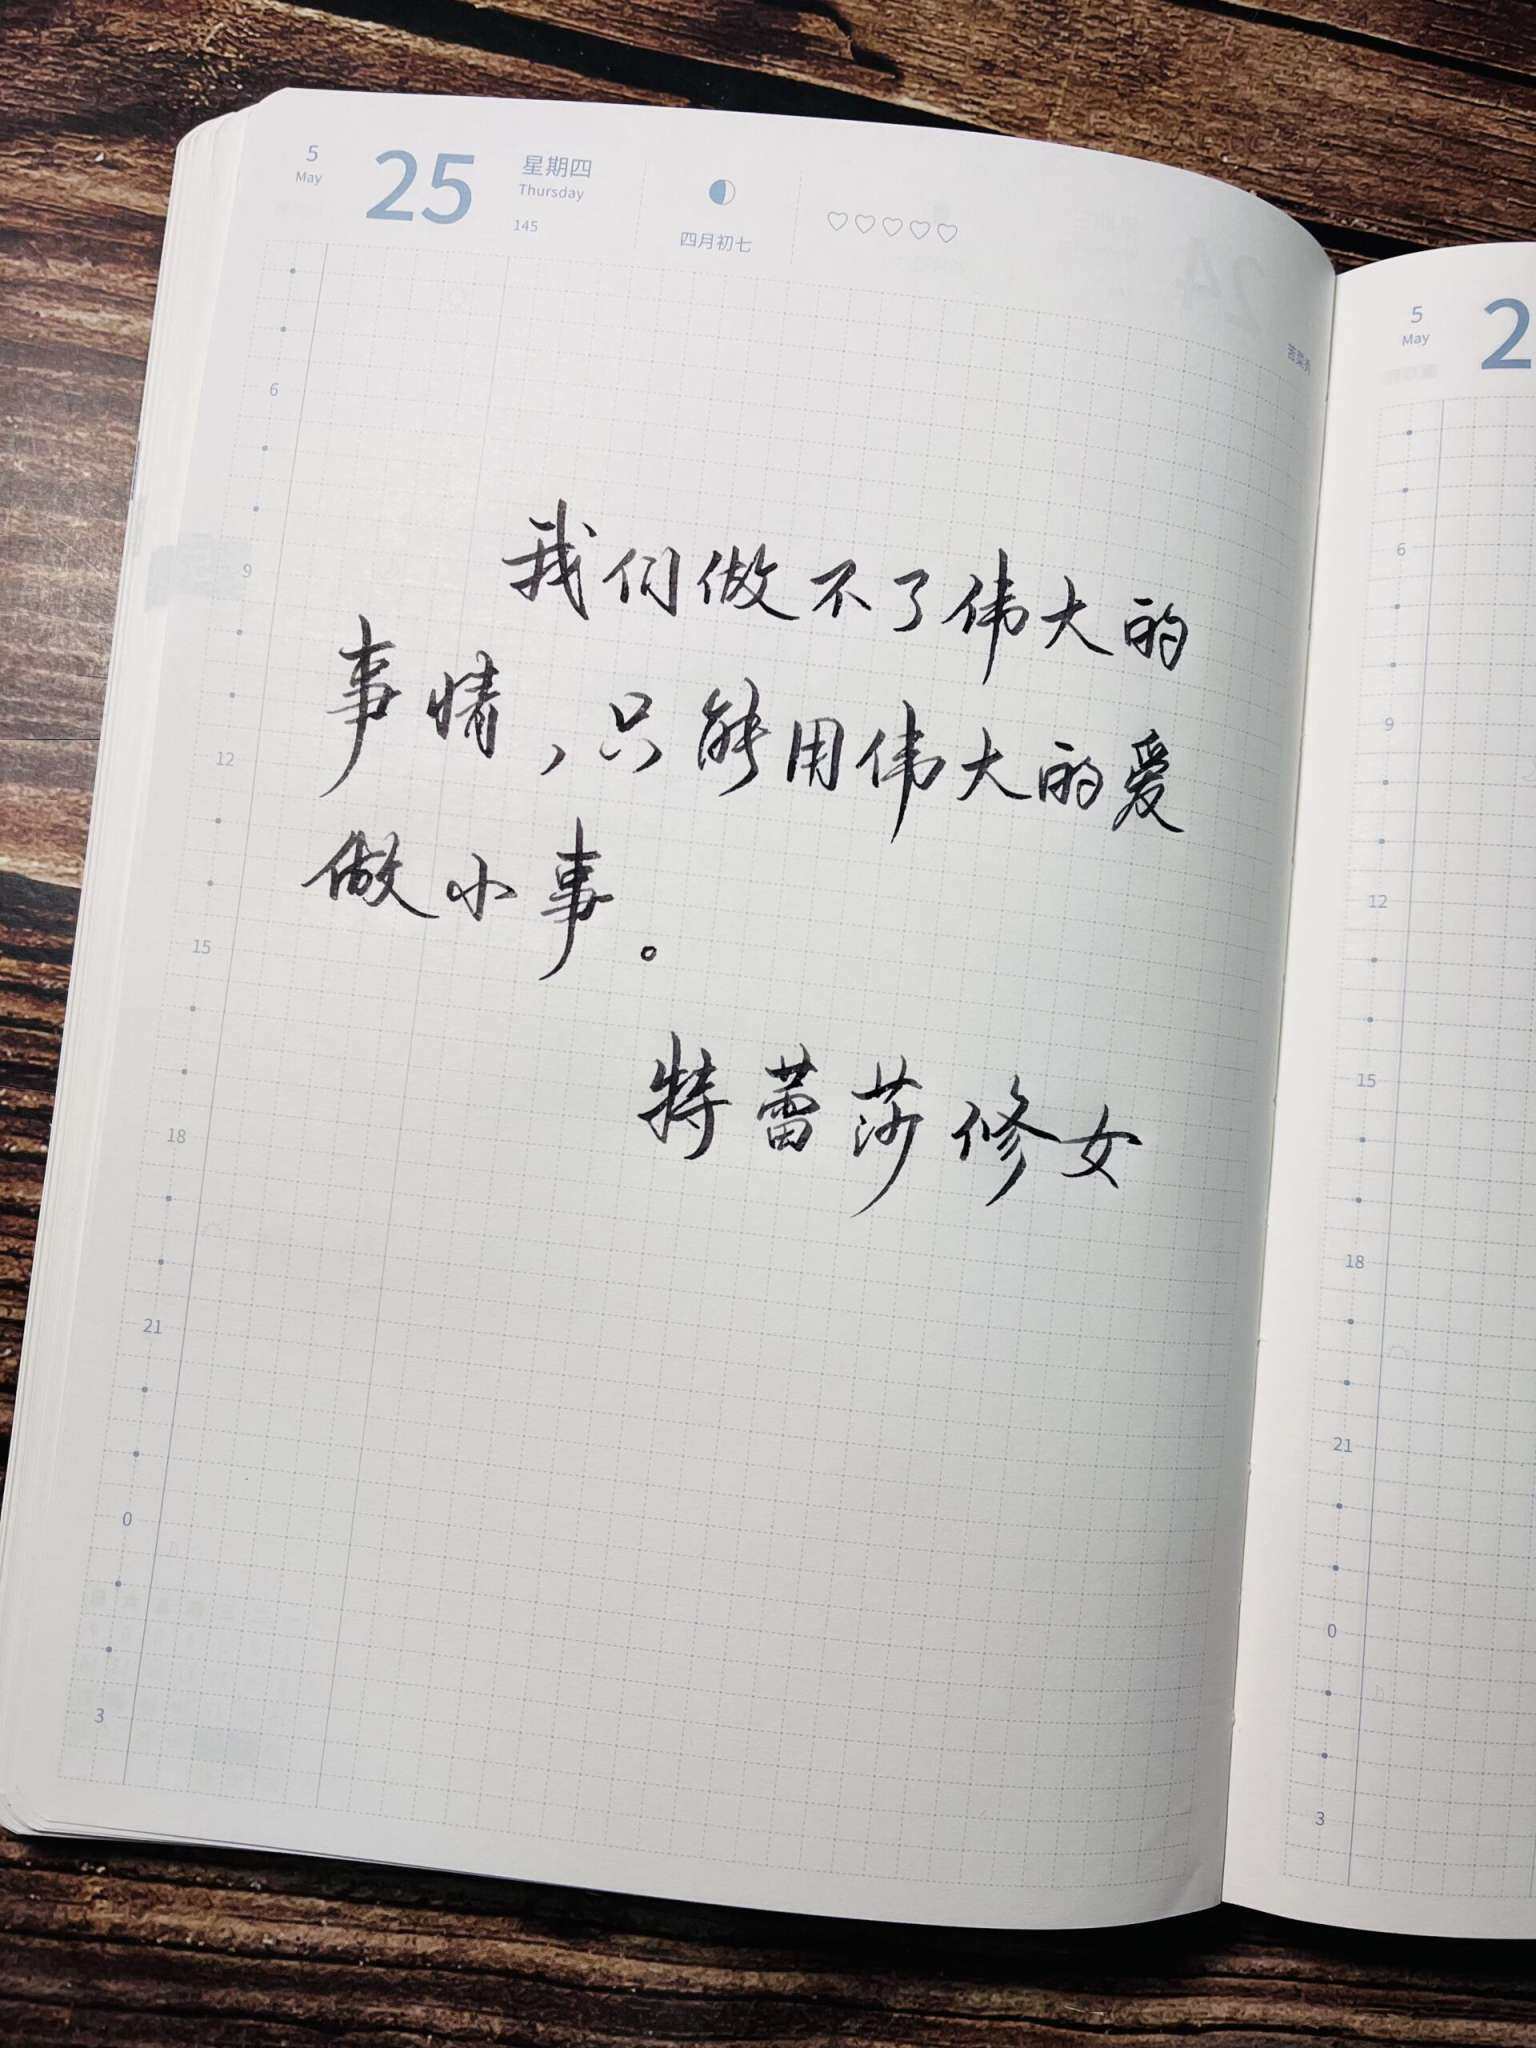 5
May
25
星期四
Thursday
145
四月初七
我们做不了伟大的
事情，只能用伟大的爱
做小事。
特蕾莎修女
6
9
12
15
18
21
0
3
5
May
2
6
9
12
15
18
21
0
3